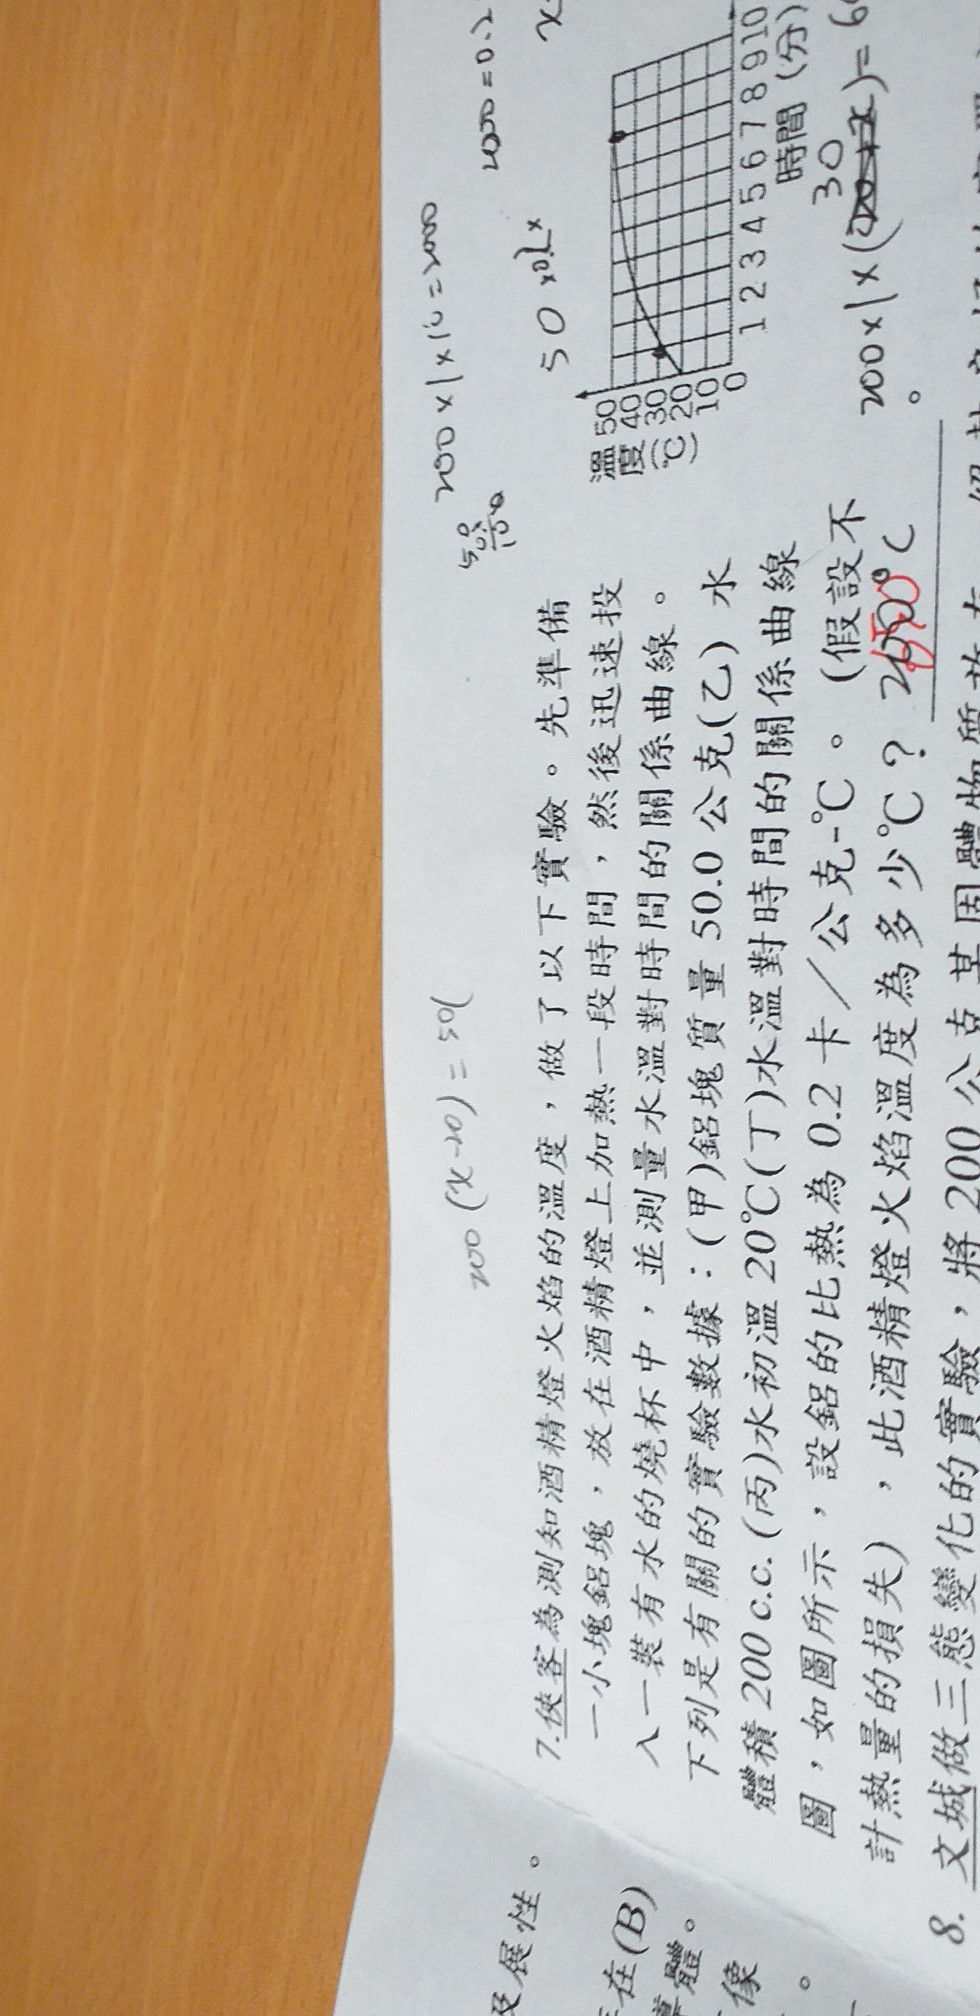 及展性。
在(B)
體。
像
200 (x-20) = 50(
200 x 1 x 10 = 2000
50 x 0.2 x
7.俠客為測知酒精燈火焰的溫度，做了以下實驗。先準備
一小塊鋁塊，放在酒精燈上加熱一段時間，然後迅速投
入一裝有水的燒杯中，並測量水溫對時間的關係曲線。
下列是有關的實驗數據：(甲)鋁塊質量 50.0 公克(乙) 水
體積 200 c.c. (丙)水初溫 20℃(丁)水溫對時間的關係曲線
圖，如圖所示，設鋁的比熱為 0.2 卡／公克-℃。(假設不
計熱量的損失) ，此酒精燈火焰溫度為多少℃？
。
溫度(℃)
50
40
30
20
10
0
1 2 3 4 5 6 7 8 9 10
時間（分）
30
200 x 1 x (
) = 6
8. 文城做三態變化的實驗，將 200 公克某固體物質放在